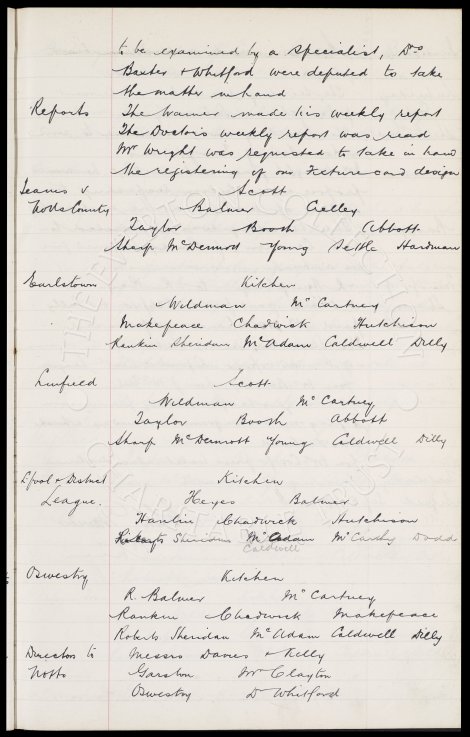 to be examined by a specialist, Drs
Baxter + Whitford were deputed to take
the matter in hand
Reports The Trainer made his weekly report
The Doctors weekly report was read
Mr Wright was requested to take in hand
the registering of our Fixture card design
Teams v Scott
Notts County Balmer Crelley
Taylor Booth Abbott
Sharp McDermott Young Settle Hardman
Earlstown Kitchen
Wildman McCartney
Makepeace Chadwick Hutchison
Rankin Sheridan McAdam Caldwell Dilly
Linfield Scott
Wildman McCartney
Taylor Booth Abbott
Sharp McDermott Young Caldwell Dilly
Lpool & District Kitchen
League. Heyes Balmer
Hamlin Chadwick Hutchison
Sheridan McAdam McCarthy Dodd
Caldwell
Oswestry Kitchen
R. Balmer McCartney
Rankin Chadwick Makepeace
Roberts Sheridan McAdam Caldwell Dilly
Directors to Messrs Davies & Kelly
Notts Garston Mr Clayton
Oswestry Dr Whitford